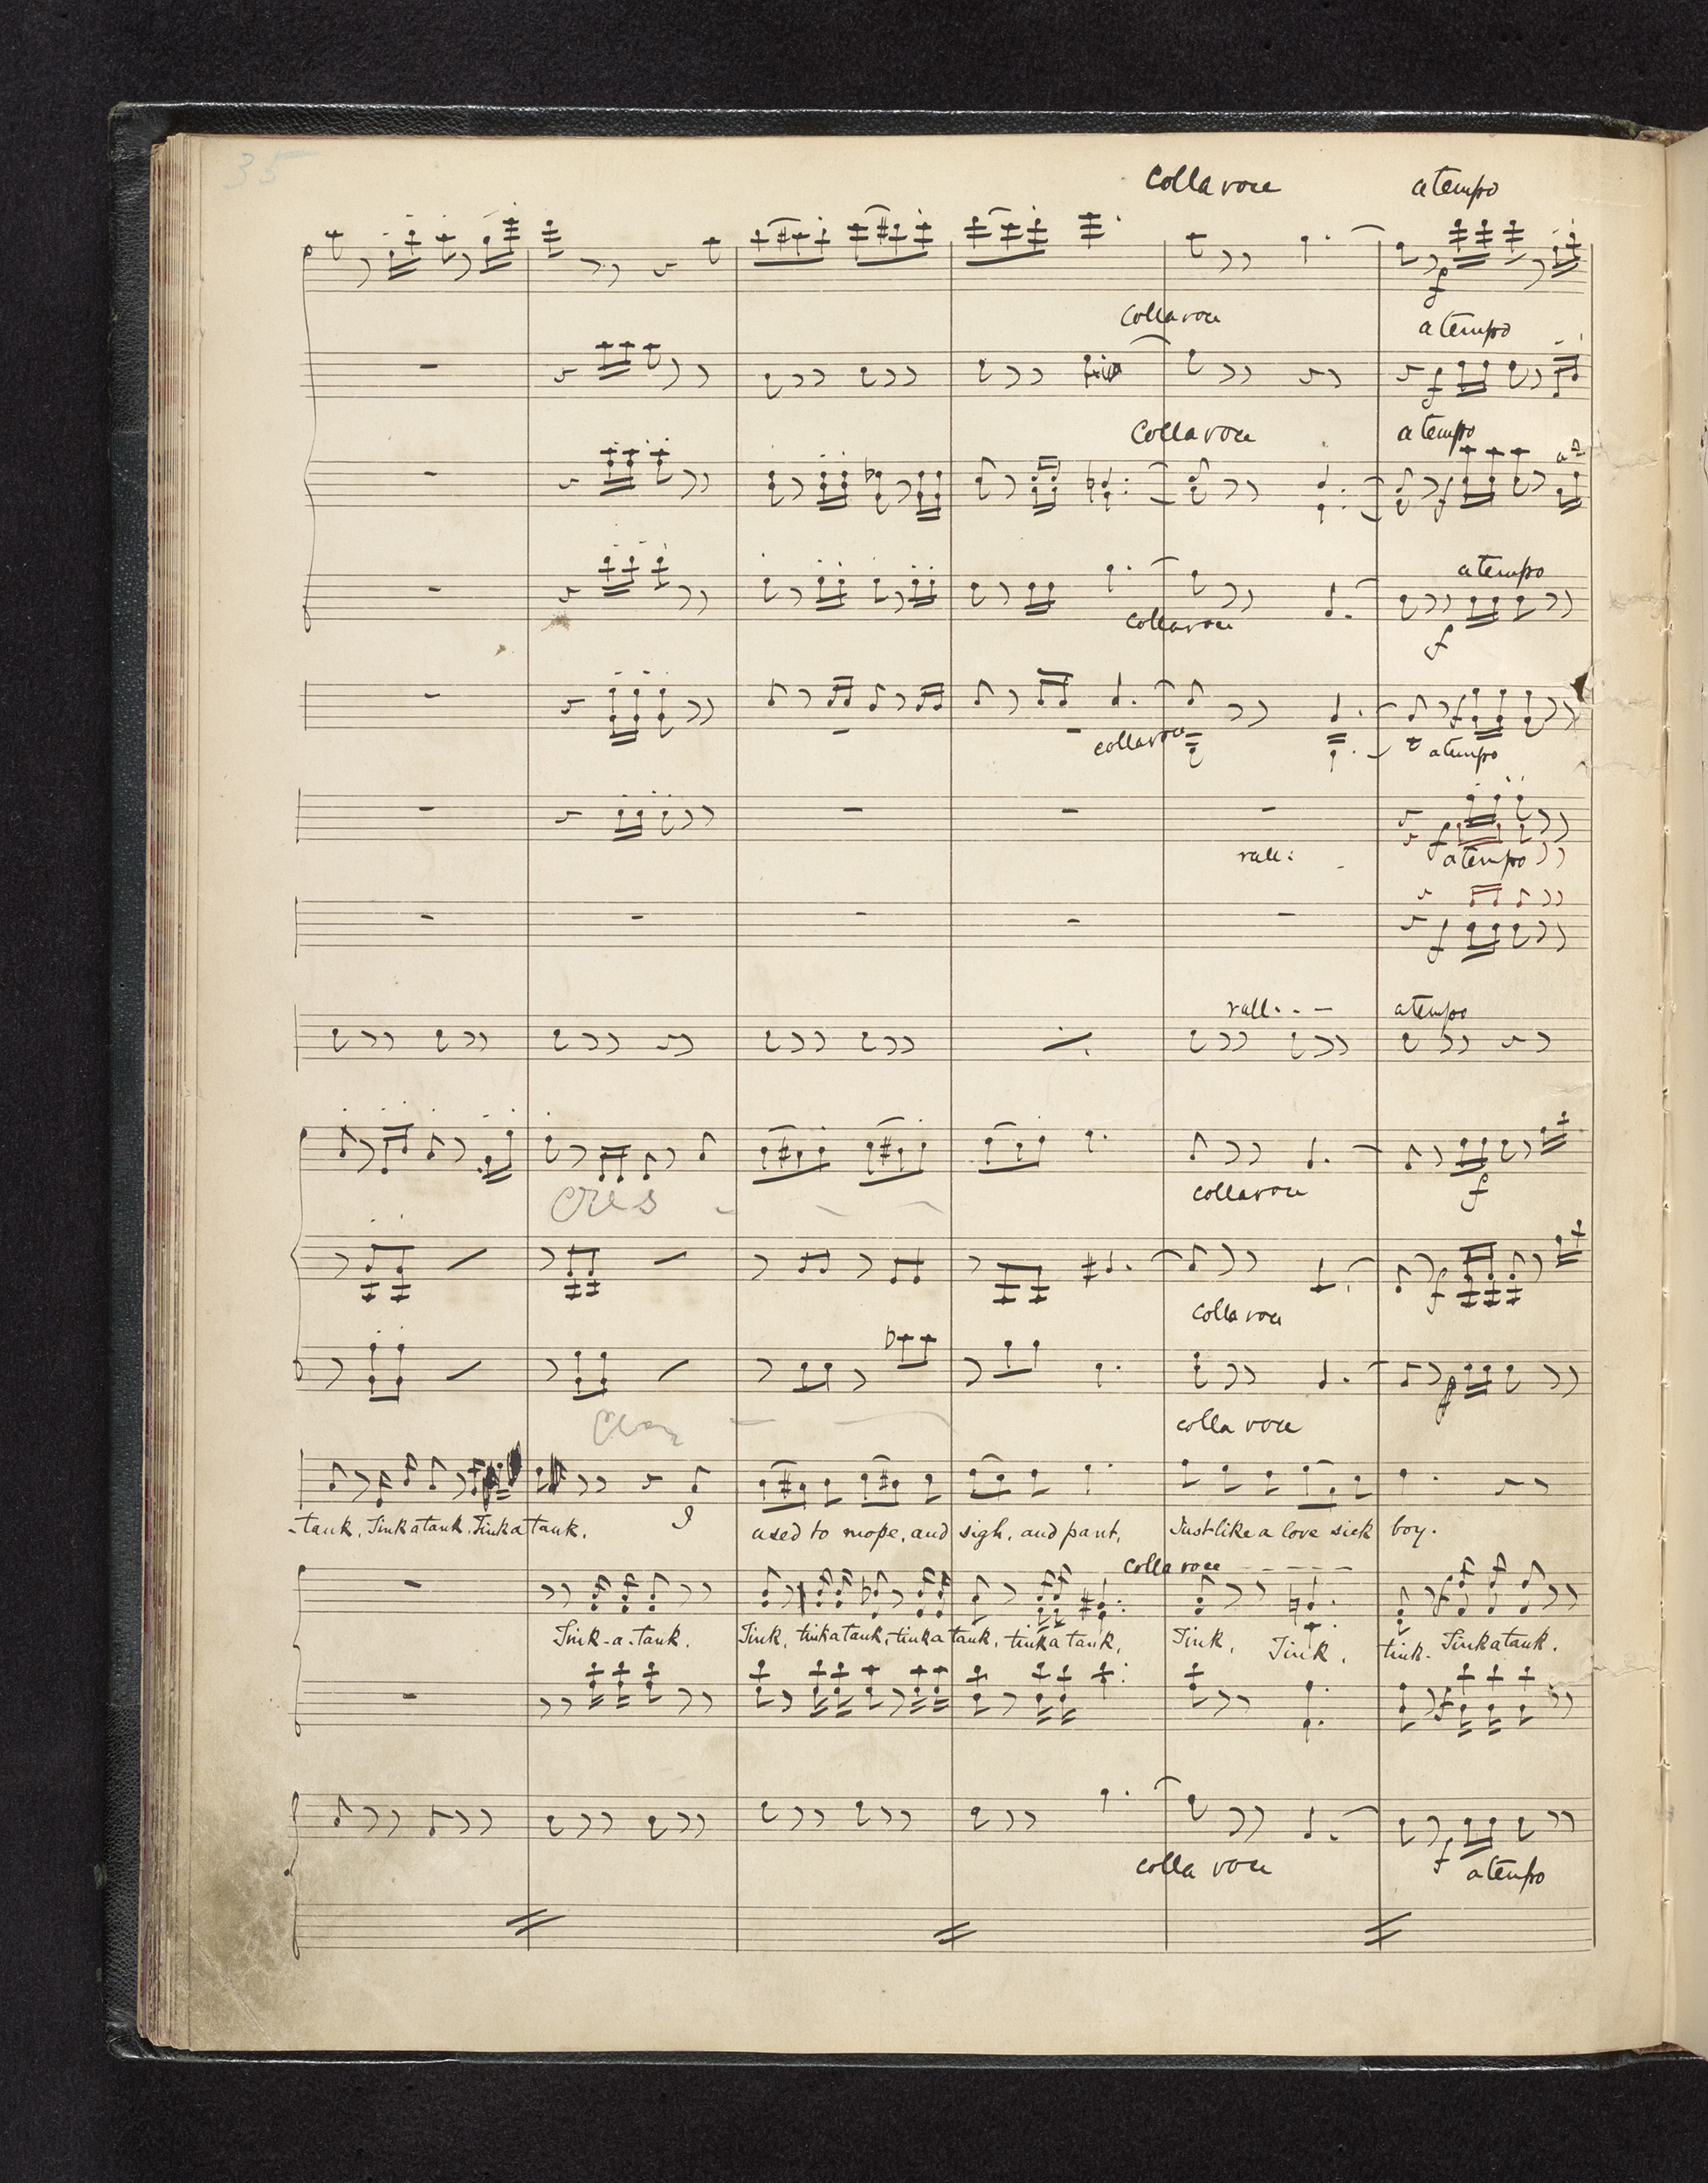 35
Colla voce a tempo
f
Colla voce a tempo
f
Colla voce a tempo
a 2
f
a tempo
colla voce
f
colla voce a tempo
f
rall: a tempo
f
f
rall. . - a tempo
cres
colla voce f
colla voce f
f
cres
colla voce
-tank, Tink a tank. Tink a tank. I used to mope, and sigh, and pant, Just like a love sick boy.
colla voce
f
Tink-a-tank. Tink, tink a tank, tink a tank, tink a tank, Tink, Tink, tink- Tink a tank.
f
f
colla voce a tempo